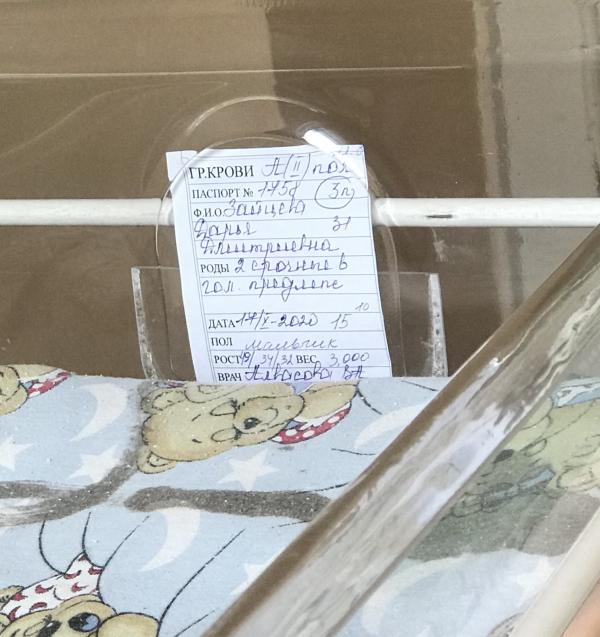 ГР.КРОВИ A(II) пол
ПАСПОРТ № 1758 3п
Ф.И.О Зайцева
Дарья 31
Дмитриевна
РОДЫ 2 срочные в
гол. предлеж
ДАТА 17/X-2020 15 10
ПОЛ мальчик
РОСТ 49/34/32 ВЕС 3,000
ВРАЧ